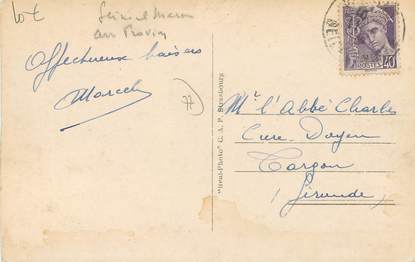 lot
Seine et Marne
arr Provin
Affectueux baisers
Marcel
77
"Real-Photo" C. A. P. Strasbourg
POSTES
Mr l'Abbé Charles
Curé-Doyen
Targon
Gironde